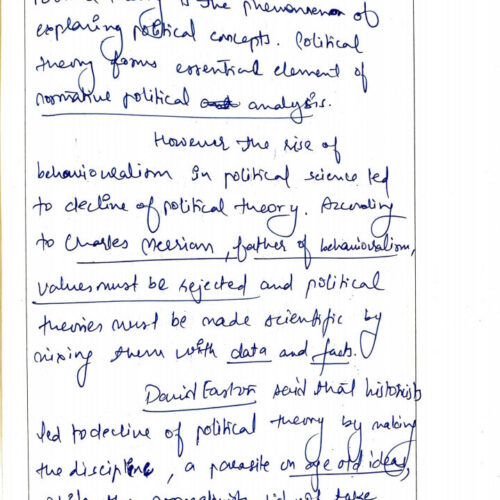 is the phenomenon of
explaning political concepts. Political
theory forms essential element of
normative political analysis.
However the rise of
behaviouralism in political science led
to decline of political theory. According
to Charles Merriam, father of behaviouralism,
values must be rejected and political
theories must be made scientific by
mixing them with data and facts.
David Easton said that historists
led to decline of political theory by making
the discipline, a parasite on age old ideas,